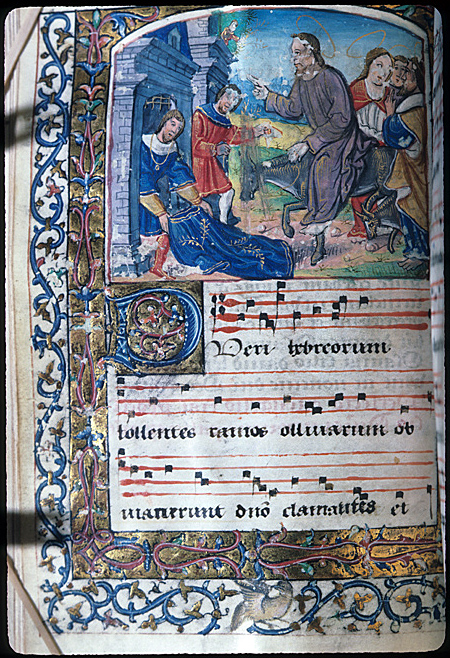 PUeri hebreorum
tollentes ramos olliuarum ob
uiauerunt dn̄o clamantes et